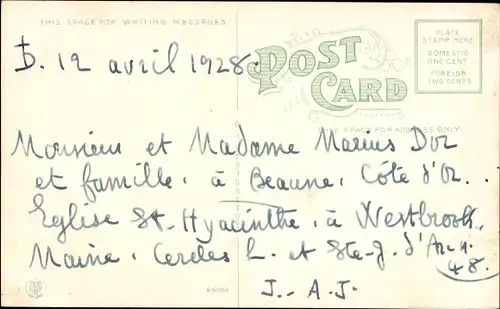 THIS SPACE FOR WRITING MESSAGES
POST CARD
PLACE
STAMP HERE
DOMESTIC
ONE CENT
FOREIGN
TWO CENTS
THIS SPACE FOR ADDRESS ONLY.
D. 12 avril 1928.
Monsieur et Madame Marius Dor
et famille. à Beaune. Côte d'Or.
Eglise St. Hyacinthe. à Westbrook.
Maine. Cercles L. et Ste-J. d'Arc.
48.
J. - A. J.